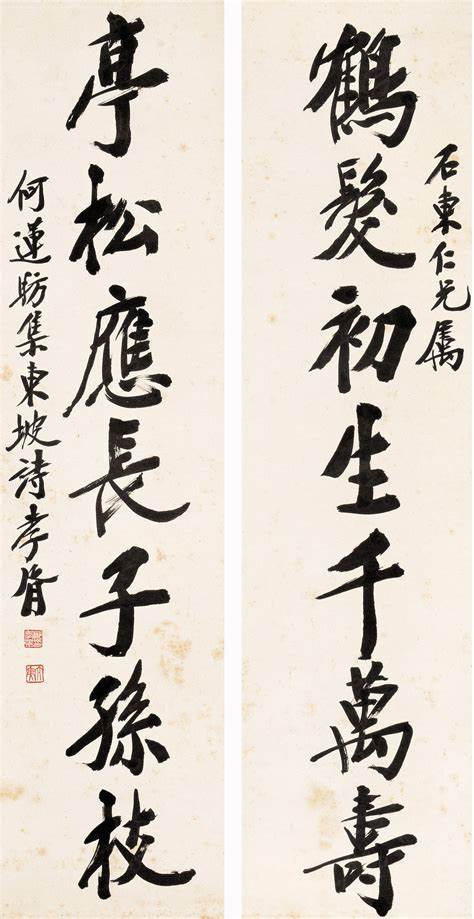 石東仁兄属
鶴髮初生千萬壽
亭松應長子孫枝
何蓮舫集東坡詩孝胥